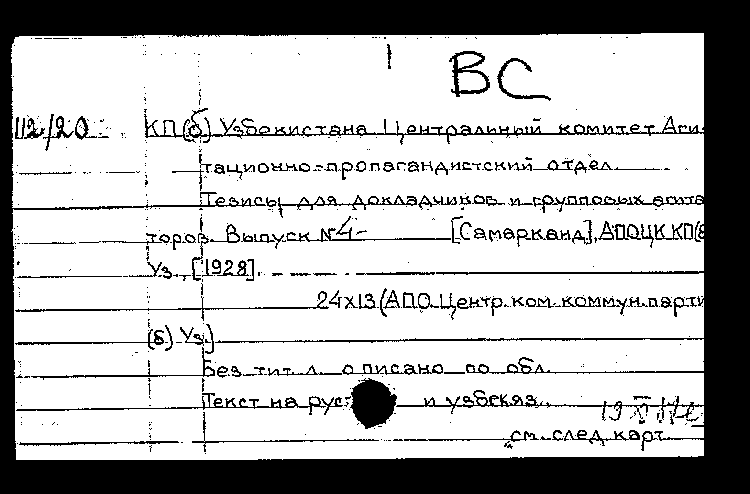 ВС
112/20 КП(б) Узбекистана Центральный комитет Аги-
тационно-пропагандистский отдел.
Тезисы для докладчиков и групповых агита
торов. Выпуск №4- [Самарканд], АПОЦК КП(б
Уз., [1928].
24х13 (АПО Центр. ком. коммун. парти
(б) Уз.)
Без тит. л. описано по обл.
Текст на рус и узбекяз.
см. след. карт.